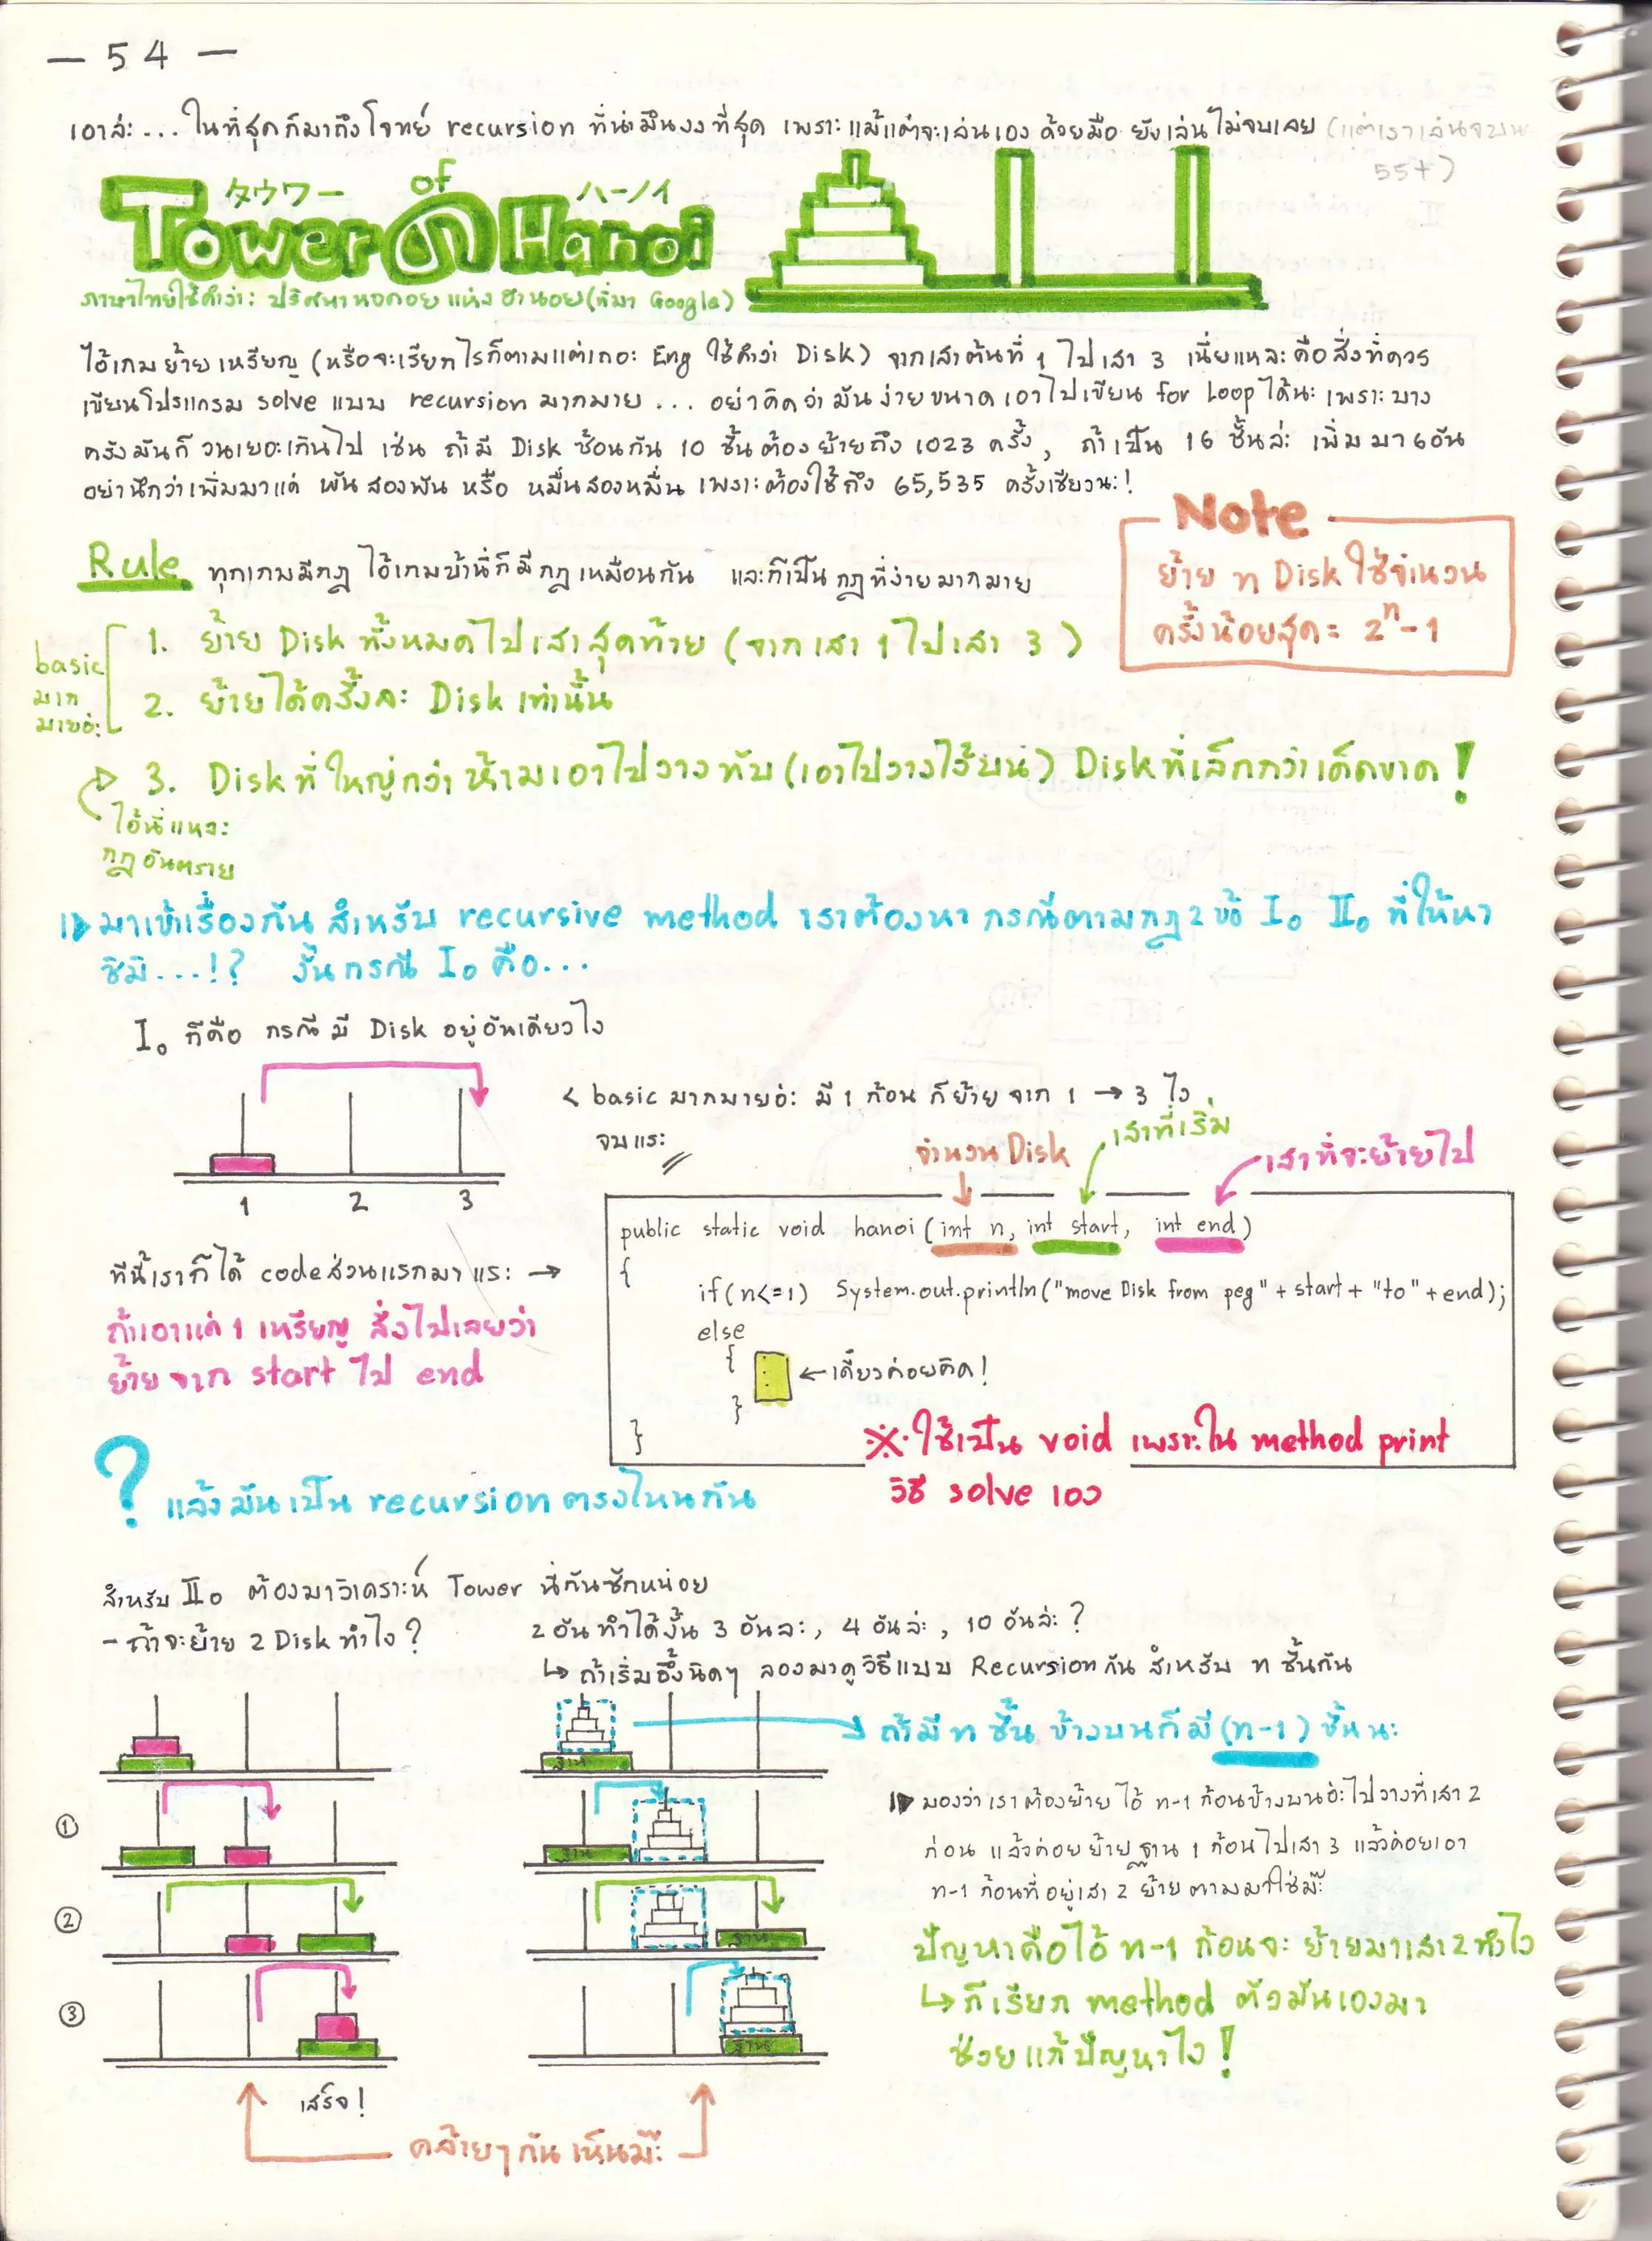 — 54 —
เอาล่ะ... ในที่สุดก็มาถึงโจทย์ recursion ที่น่ามึนงงที่สุด เพราะแม้แต่จะเล่นเองด้วยมือ ยังเล่นไม่จบเลย (แต่เราเล่นจบนะ
55+)
タウワー of ハーノイ
Tower の Hanoi
ภาษาไทยใช้คำว่า: ปริศนาหอคอยแห่งฮานอย (ที่มา Google)
ไอ้เกมย้ายเหรียญ (หรือจะเรียกไรก็ตามแต่เถอะ Eng ใช้คำว่า Disk) จากเสาต้นที่ 1 ไปเสา 3 เนี่ยแหละคือสิ่งที่ควร
เขียนโปรแกรม solve แบบ recursion มากมาย... อย่าคิดว่ามันง่ายขนาดเอาไปเขียน for loop ได้นะ เพราะบาง
ครั้งมันก็วนเยอะเกินไป เช่น ถ้ามี Disk ซ้อนกัน 10 ชั้นต้องย้ายถึง 1023 ครั้ง, ถ้าเป็น 16 ชั้นล่ะ เพิ่มมา 6 อัน
อย่านึกว่าเพิ่มมาแค่ พันสองพัน หรือ หมื่นสองหมื่น เพราะต้องใช้ถึง 65,535 ครั้งเชียวนะ!
Note
ย้าย n Disk ใช้จำนวน
ครั้งน้อยสุด = 2ⁿ-1
Rule ทุกเกมมีกฎ ไอ้เกมบ้านี่ก็มีกฎเหมือนกัน และก็เป็นกฎที่ง่ายมากมาย
basic
มาก
มายอ่ะ
1. ย้าย Disk ทั้งหมดไปเสาสุดท้าย (จากเสา 1 ไปเสา 3)
2. ย้ายได้ครั้งละ Disk เท่านั้น
3. Disk ที่ใหญ่กว่าห้ามเอาไปวางทับ (เอาไปวางไว้บน) Disk ที่เล็กกว่าเด็ดขาด!
ไอ้นี่แหละ
กฎอันตราย
มาเข้าเรื่องกัน สำหรับ recursive method เราต้องหากรณีตามกฎ 2 ข้อ I. II. ที่ให้หา
ชิมิ...!? งั้นกรณี I. คือ...
I. ก็คือ กรณีมี Disk อยู่อันเดียวไง
< basic มากมายอ่ะ มี 1 ก้อน ก็ย้ายจาก 1 → 3 ไง
จบแระ
1 2 3
จำนวน Disk
เสาที่เริ่ม
เสาที่จะย้ายไป
public static void hanoi (int n, int start, int end)
{
if(n<=1) System.out.println("move Disk from peg" + start + "to" + end);
else
{
← เดี๋ยวค่อยคิด!
}
}
※ ใช้เป็น void เพราะใน method print
วิธี solve เอง
ทีนี้เราก็ได้ code ส่วนแรกมาแระ →
ถ้าเอาแค่ 1 เหรียญ สั่งไปเลยว่า
ย้ายจาก start ไป end
? แล้วมันเป็น recursion ตรงไหนกัน
สำหรับ II. ต้องมาวิเคราะห์ Tower นี่กันซักหน่อย
- ถ้าจะย้าย 2 Disk ทำไง?
2 อันทำได้งั้น 3 อันละ, 4 อันล่ะ, 10 อันล่ะ?
↳ ถ้าเริ่มอึ้งนิดๆ ลองมาดูวิธีแบบ Recursion กัน สำหรับ n ชั้นกัน
ฐาน
ถ้ามี n ชั้น ข้างบนก็มี (n-1) ชั้นนะ
①
ฐาน
มองว่าเราต้องย้าย ไอ้ n-1 ก้อนข้างบนอ่ะไปวางที่เสา 2
ก่อน แล้วค่อยย้าย ฐาน 1 ก้อนไปเสา 3 แล้วค่อยเอา
n-1 ก้อนที่อยู่เสา 2 ย้ายตามมาใช่มั๊ะ
②
ฐาน
ปัญหาคือไอ้ n-1 ก้อนจะย้ายมาเสา 2 ทำไง
↳ ก็เรียก method ตัวมันเองมา
ช่วยแก้ปัญหาไง!
③
ฐาน
เสร็จ!
คล้ายๆกัน เห็นมั๊ะ